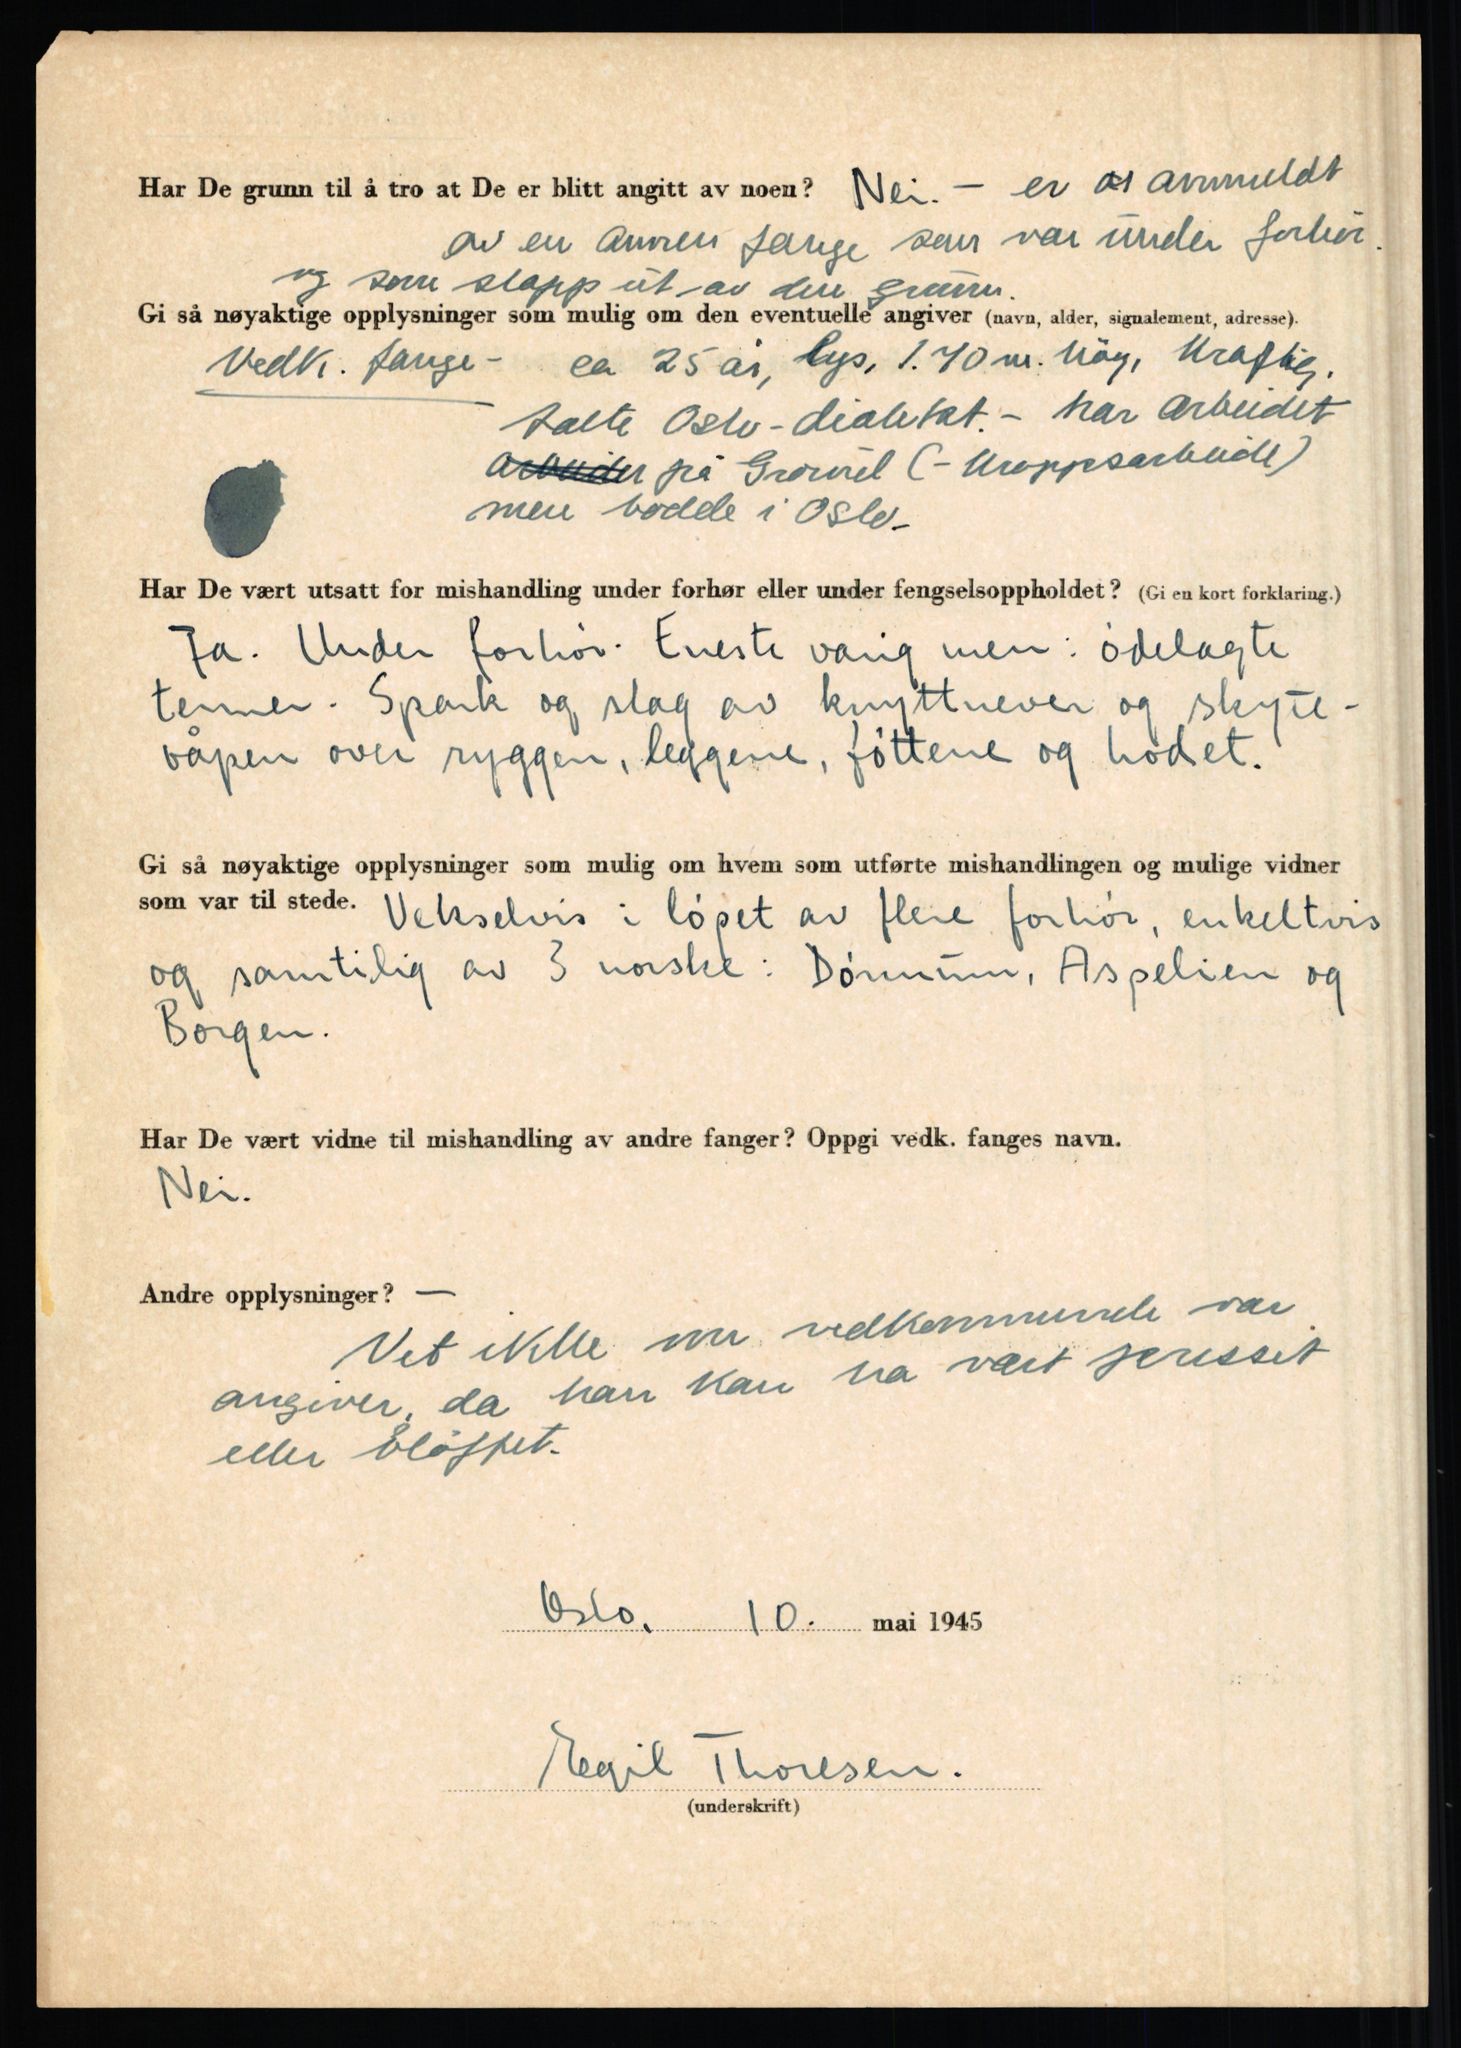 Har De grunn til å tro at De er blitt angitt av noen? Nei. – er anmeldt
av en annen fange som var under forhör.
og som slapp ut av den grunn.
Gi så nøyaktige opplysninger som mulig om den eventuelle angiver (navn, alder, signalement, adresse).
Vedk. fange – ca 25 år, lys, 1.70 m. höy, kraftig.
talte Oslo-dialekt. – har arbeidet
på (– kroppsarbeide)
men bodde i Oslo –
Har De vært utsatt for mishandling under forhør eller under fengselsoppholdet? (Gi en kort forklaring.)
Ja. Under forhör. Eneste varig men: ödelagte
tenner. Spark og slag av knyttnever og skyte-
våpen over ryggen, leggene, föttene og hodet.
Gi så nøyaktige opplysninger som mulig om hvem som utførte mishandlingen og mulige vidner
som var til stede. Vekselvis i löpet av flere forhör, enkeltvis
og samtilig av 3 norske: Dönnum, Aspelien og
Borgen.
Har De vært vidne til mishandling av andre fanger? Oppgi vedk. fanges navn.
Nei.
Andre opplysninger? —
Vet ikke om vedkommende var
angiver, da han kan ha vært presset
eller blöffet.
Oslo, 10. mai 1945
Egil Thoresen.
(underskrift)